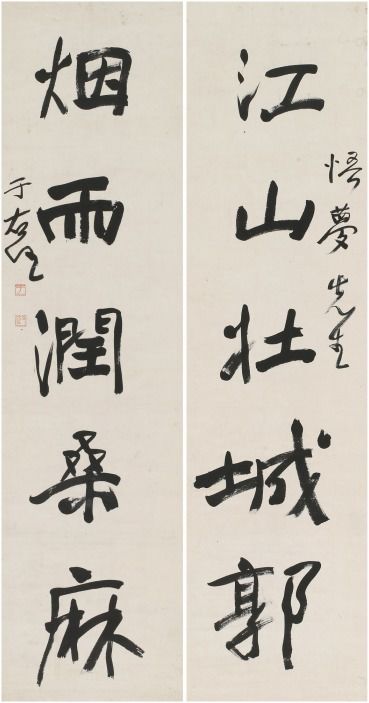 江山壮城郭
悟夢先生
烟雨潤桑麻
于右任